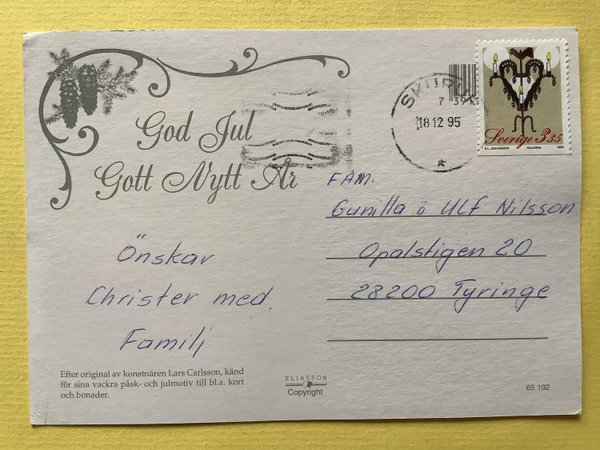 God Jul
Gott Nytt År
Önskar
Christer med.
Familj
Efter original av konstnären Lars Carlsson, känd
för sina vackra påsk- och julmotiv till bl.a. kort
och bonader.
ELIASSON
Copyright
65 192
18 12 95
Sverige 3.35
FAM.
Gunilla ö Ulf Nilsson
Opalstigen 20
28200 Tyringe